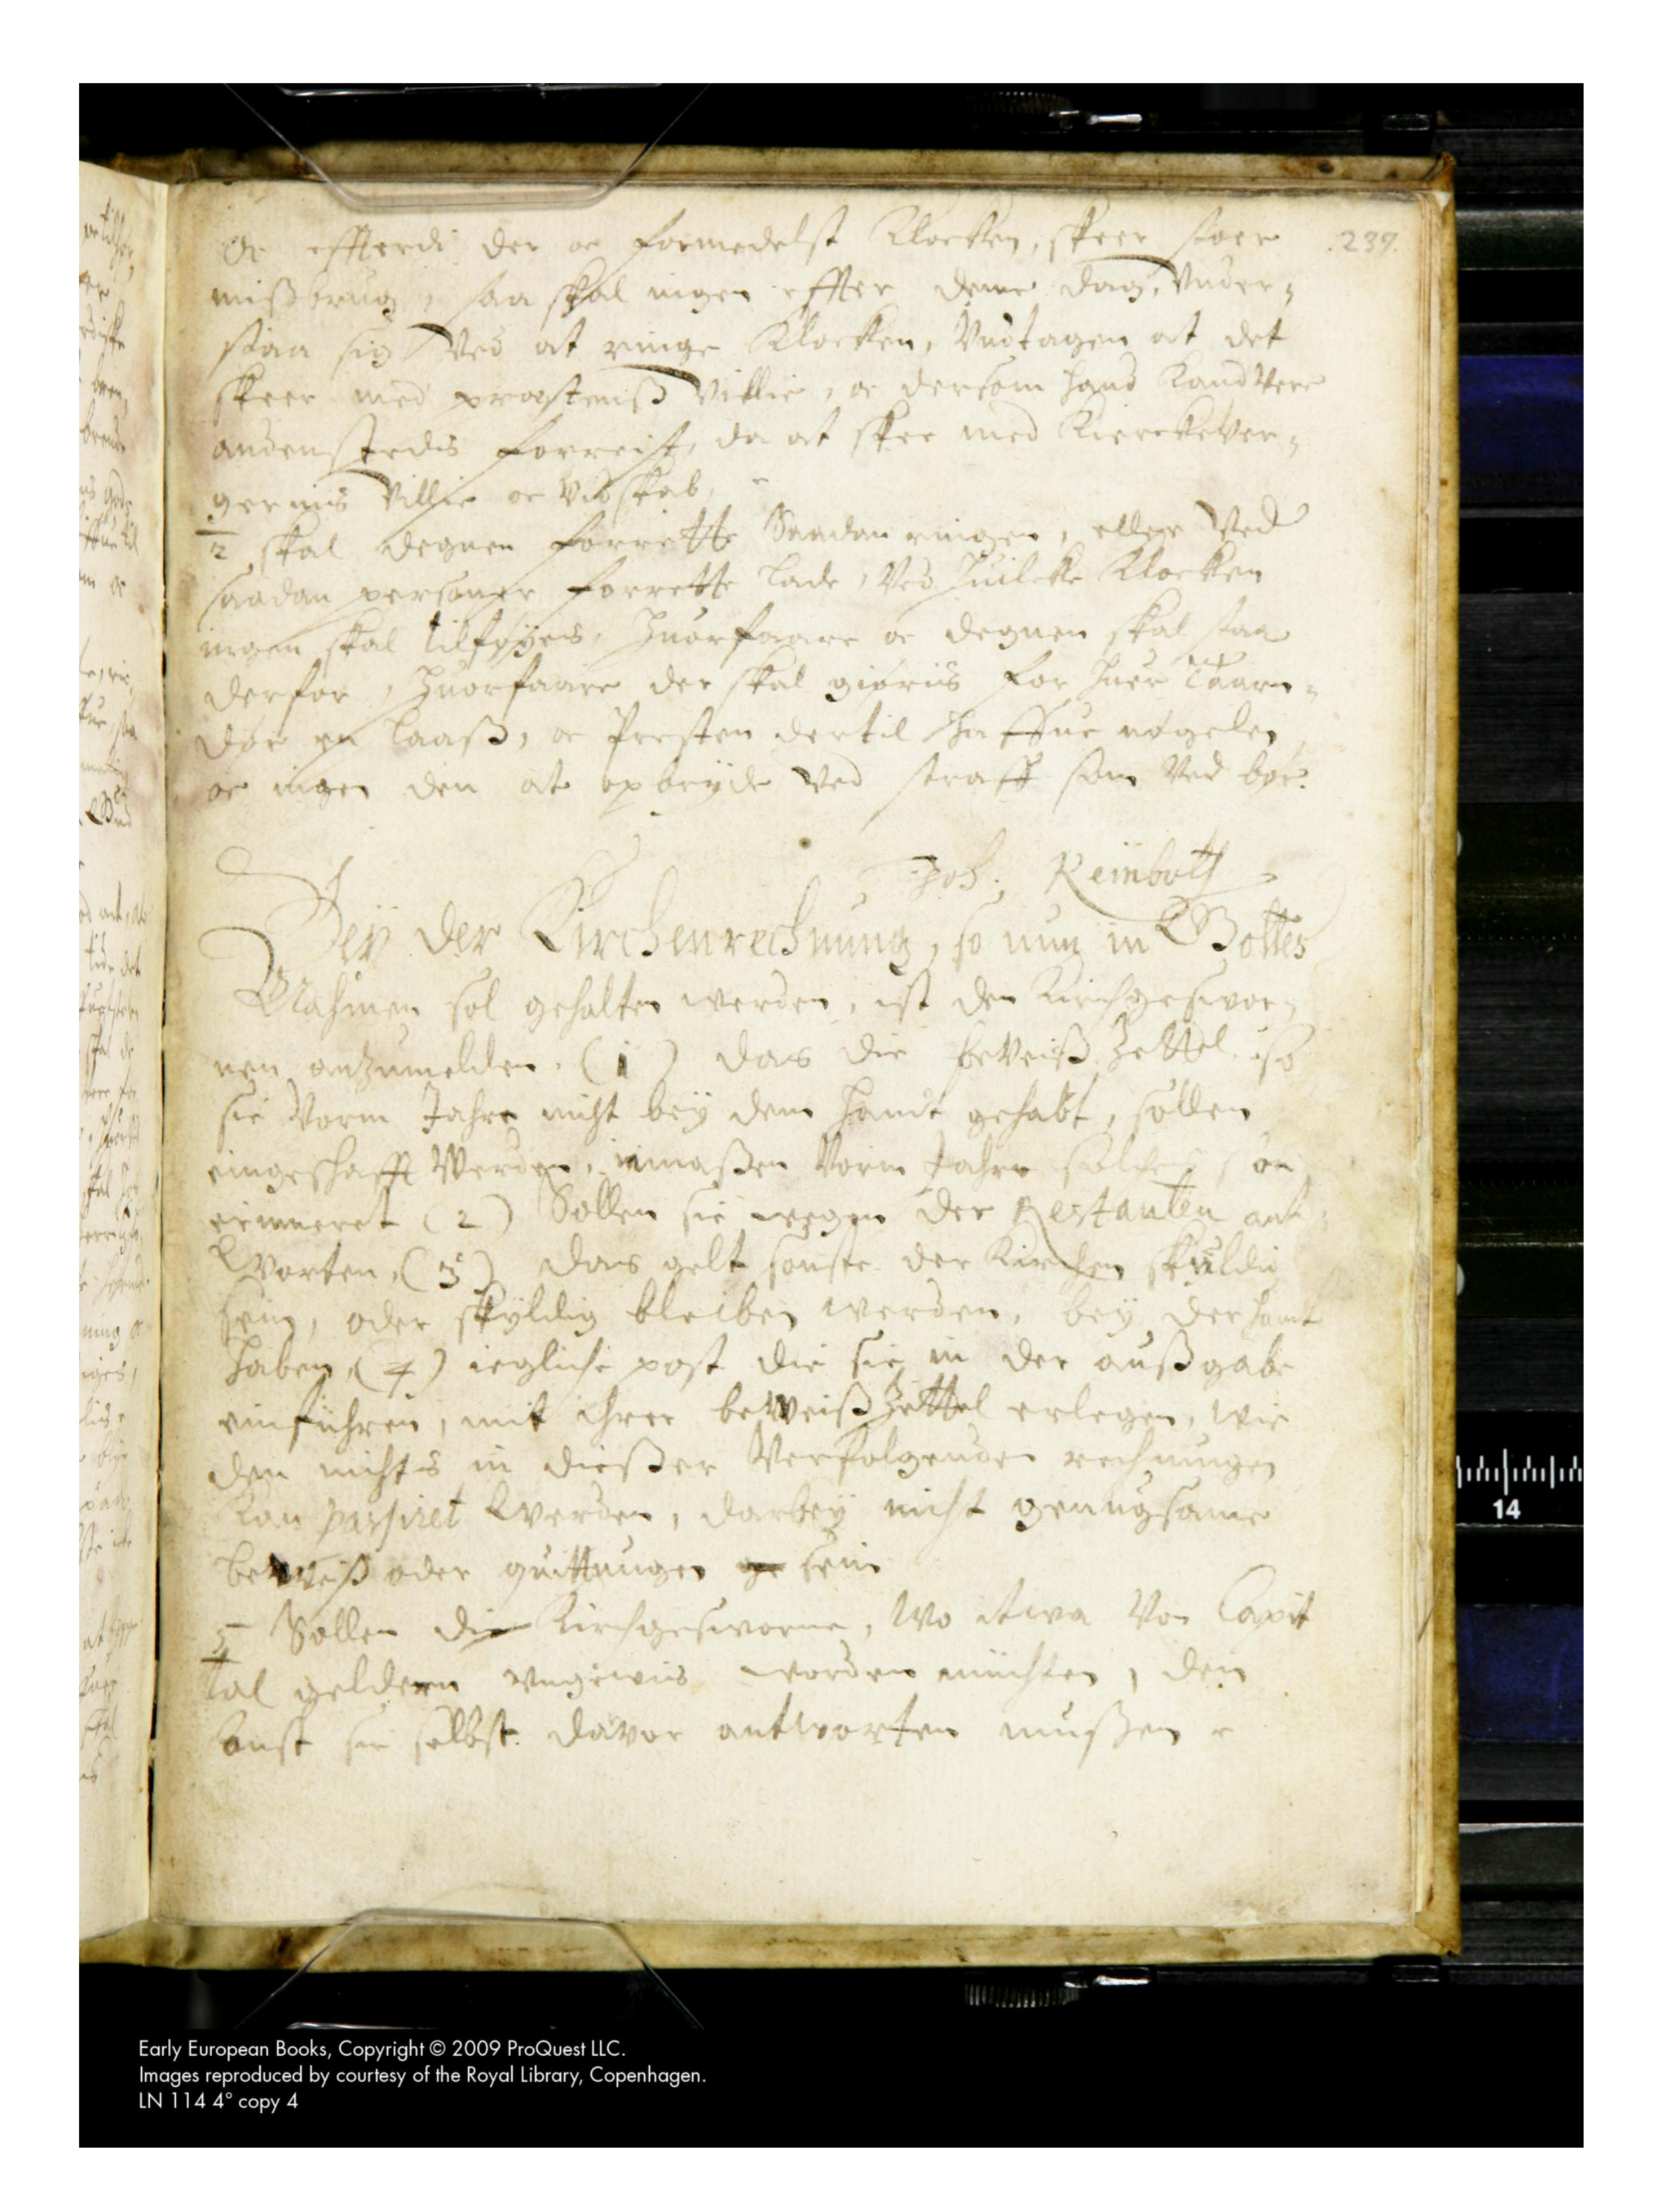 Oc effterdi der oc formedelst Klocken, skeer stoer
239.
mißbrug, saa skal ingen effter denne dag, under-
staa sig Ved at ringe Klocken, Undtagen at det
skeer med præstens Villie, oc dersom hand kand Vere
andenstedis forreist, da at skee med Kierckever-
gernis Villie oc Vidskab,
2 skal degnen forrette Saadan ringen, eller Ved
saadan personer forrette lade, Ved huilcke Klocken
ingen skal tilføyes, huorfaare oc degnen skal staa
derfor, huorfaare der skal giøris for huer taarn-
dør en laaß, oc Presten dertil haffue nøgelen,
oc ingen den at opbryde Ved straff som Ved bør.
Joh. Reinboth
Bey der Kirchenrechnung, so nun in Gottes
Nahmen sol gehalten werden, ist den Kirchgeswor-
nen anzumelden. (1) das die beveiß Zettel so
sie Vorm Jahre nicht bey dem handt gehabt, sollen
eingeschafft Werden, inmaßen Vorm Jahre solches
erinneret (2) Sollen sie wegen der Restanten ant-
Worten, (3) das gelt sonste der Kirchen skuldig
sein, oder skyldig bleiben werden, bey der handt
haben, (4) iegliche post die sie in der außgabe
einführen, mit ihrer beweiß Zettel erlegen, wie
den nichts in dießer Verfolgenden rechnungen
kan passiret Werden, darbey nicht genugsame
beweiß oder quittungen sein
5 Sollen die Kirchgesworne, Wo etwa Von Capit
tal geldern ungewis worden müchten, den
sonst sie selbst davor antworten mußen
Early European Books, Copyright © 2009 ProQuest LLC.
Images reproduced by courtesy of the Royal Library, Copenhagen.
LN 114 4° copy 4
14